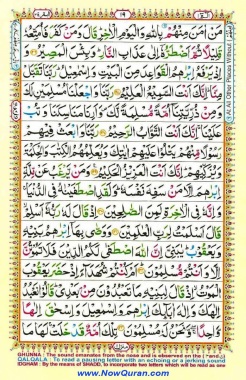 ١٩
مَنْ اٰمَنَ مِنْهُمْ بِاللّٰهِ وَالْيَوْمِ الْاٰخِرِ قَالَ وَمَنْ كَفَرَ فَاُمَتِّعُهٗ
قَلِيْلًا ثُمَّ اَضْطَرُّهٗۤ اِلٰى عَذَابِ النَّارِ وَبِئْسَ الْمَصِيْرُ
وَاِذْ يَرْفَعُ اِبْرٰهٖمُ الْقَوَاعِدَ مِنَ الْبَيْتِ وَاِسْمٰعِيْلُ رَبَّنَا تَقَبَّلْ
مِنَّا اِنَّكَ اَنْتَ السَّمِيْعُ الْعَلِيْمُ رَبَّنَا وَاجْعَلْنَا مُسْلِمَيْنِ لَكَ
وَمِنْ ذُرِّيَّتِنَاۤ اُمَّةً مُّسْلِمَةً لَّكَ وَاَرِنَا مَنَاسِكَنَا وَتُبْ
عَلَيْنَا اِنَّكَ اَنْتَ التَّوَّابُ الرَّحِيْمُ رَبَّنَا وَابْعَثْ فِيْهِمْ
رَسُوْلًا مِّنْهُمْ يَتْلُوْا عَلَيْهِمْ اٰيٰتِكَ وَيُعَلِّمُهُمُ الْكِتٰبَ وَالْحِكْمَةَ
وَيُزَكِّيْهِمْ اِنَّكَ اَنْتَ الْعَزِيْزُ الْحَكِيْمُ وَمَنْ يَّرْغَبُ عَنْ مِّلَّةِ
اِبْرٰهٖمَ اِلَّا مَنْ سَفِهَ نَفْسَهٗ وَلَقَدِ اصْطَفَيْنٰهُ فِى الدُّنْيَا
وَاِنَّهٗ فِى الْاٰخِرَةِ لَمِنَ الصّٰلِحِيْنَ اِذْ قَالَ لَهٗ رَبُّهٗۤ اَسْلِمْ
قَالَ اَسْلَمْتُ لِرَبِّ الْعٰلَمِيْنَ وَوَصّٰى بِهَاۤ اِبْرٰهٖمُ بَنِيْهِ
وَيَعْقُوْبُ يٰبَنِىَّ اِنَّ اللّٰهَ اصْطَفٰى لَكُمُ الدِّيْنَ فَلَا تَمُوْتُنَّ
اِلَّا وَاَنْتُمْ مُّسْلِمُوْنَ اَمْ كُنْتُمْ شُهَدَآءَ اِذْ حَضَرَ يَعْقُوْبَ
الْمَوْتُ اِذْ قَالَ لِبَنِيْهِ مَا تَعْبُدُوْنَ مِنْۢ بَعْدِىْ قَالُوْا نَعْبُدُ
اِلٰهَكَ وَاِلٰهَ اٰبَآئِكَ اِبْرٰهٖمَ وَاِسْمٰعِيْلَ وَاِسْحٰقَ اِلٰهًا
وَّاحِدًا وَّنَحْنُ لَهٗ مُسْلِمُوْنَ تِلْكَ اُمَّةٌ قَدْ خَلَتْ لَهَا مَا
GHUNNA : The sound emanates from the nose and is observed on the
QALQALA : To read a pausing letter with an echoing or a jerking sound
IDGHAM : By the means of SHADD, to incorporate two letters which will be read as one
www.NowQuran.com